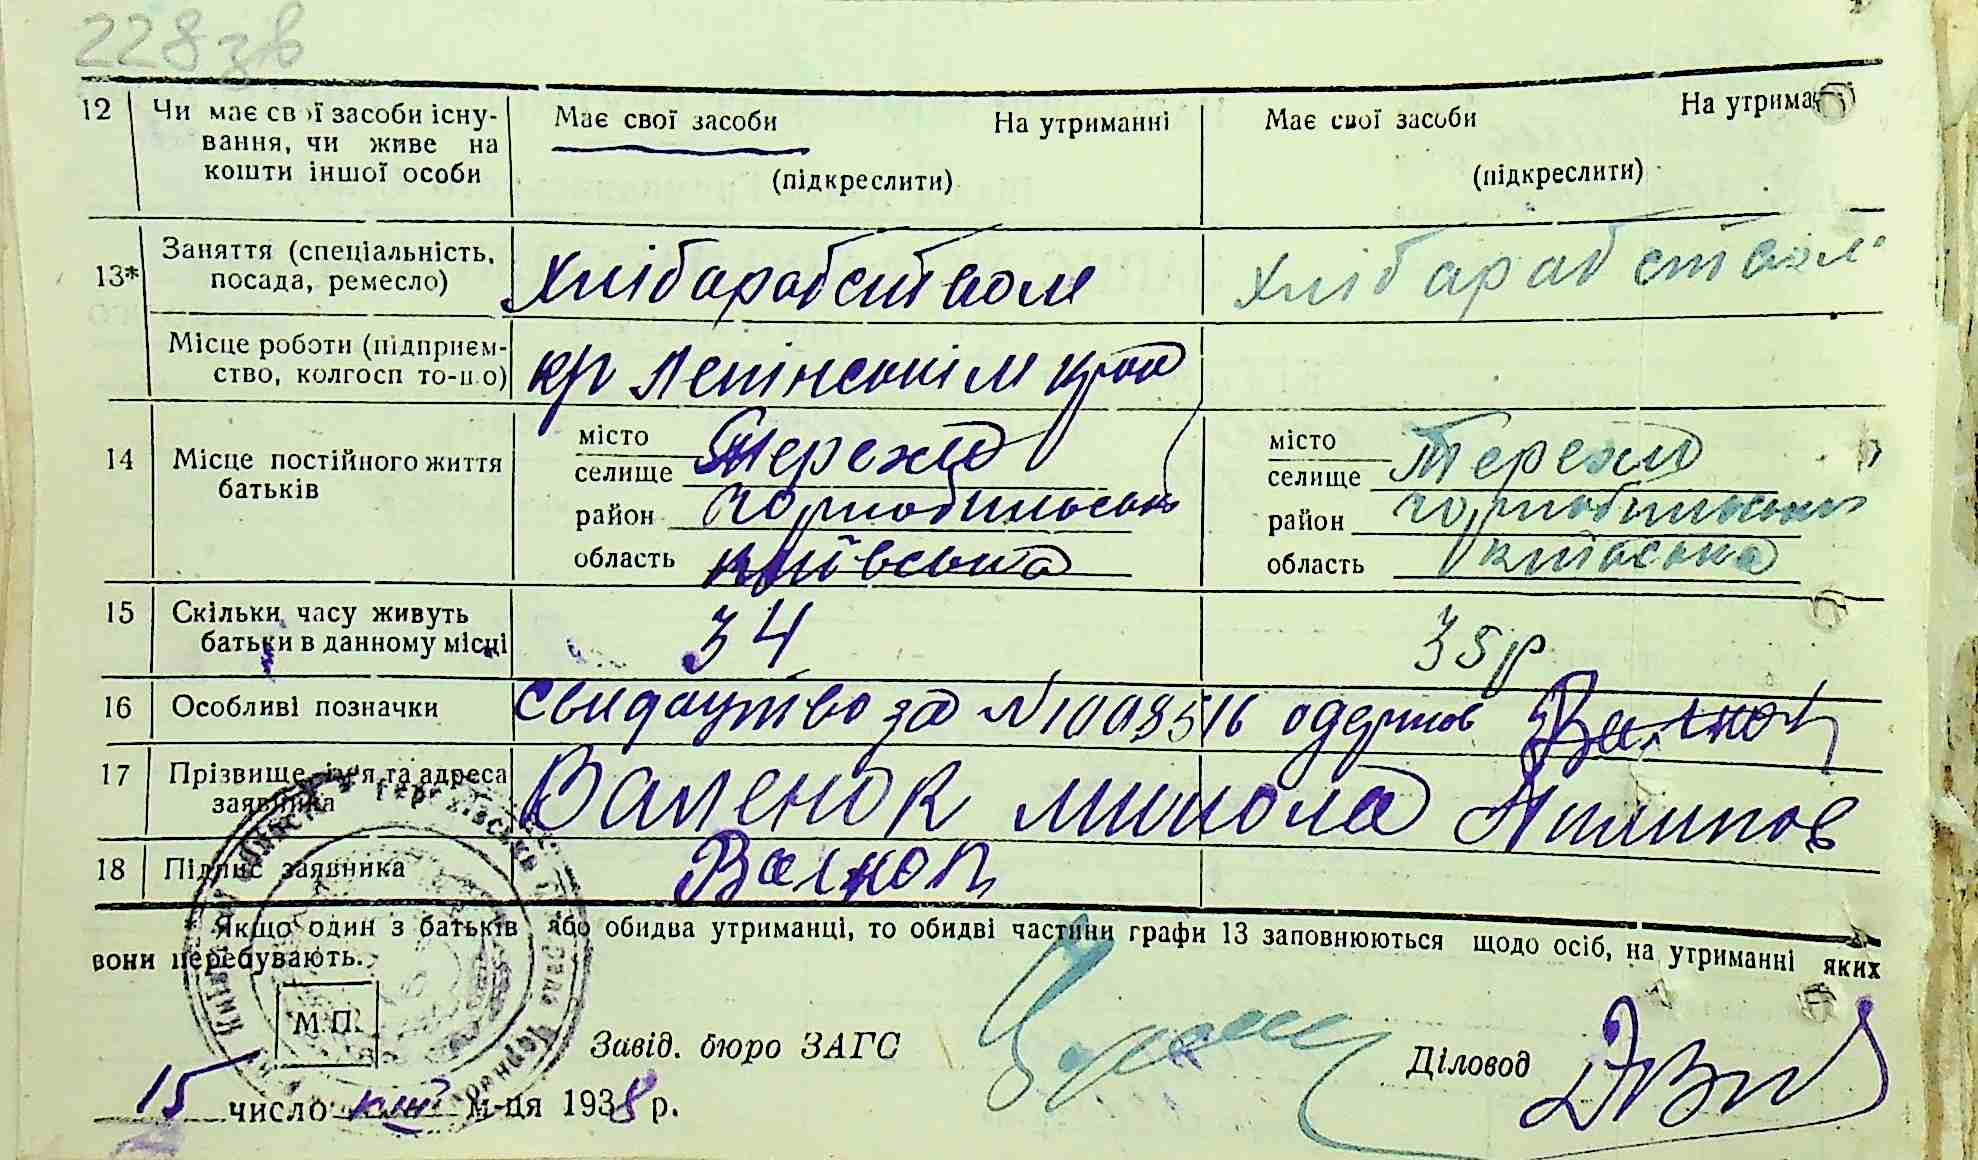 228 зв
12 Чи має свої засоби існу- Має свої засоби На утриманні Має свої засоби На утриманні
вання, чи живе на
кошти іншої особи (підкреслити) (підкреслити)
13* Заняття (спеціальність, Хлібарабством Хлібарабством
посада, ремесло)
Місце роботи (підприєм-
ство, колгосп то-що) кр Летінським
14 Місце постійного життя місто Терехів місто Терехів
батьків селище селище
район Чорнобильськ район Чорнобильськ
область київська область київська
15 Скільки часу живуть 34 35р
батьки в данному місці
16 Особливі позначки свидацтво за N 1008516 одержав
17 Прізвище, ім'я та адреса Валенок микола Пилипов
заявника
18 Підпис заявника Валнок
Якщо один з батьків або обидва утриманці, то обидві частини графи 13 заповнюються щодо осіб, на утриманні яких
вони перебувають.
М.П.
Завід. бюро ЗАГС Діловод
15 число м-ця 1938 р.